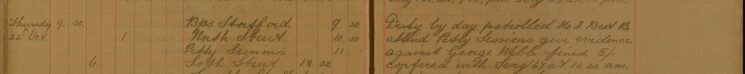 Thursday 9. 30. Bps Stafford 9 30 Duty by day patrolled No 2 Beat
24 Oct 1 North Street 10. 30 attend Petty Sessions give evidence
Petty Sessions 11 against George Webb fined 5/-
6 South Street 12 30 confered with Serg at 10.30 am.